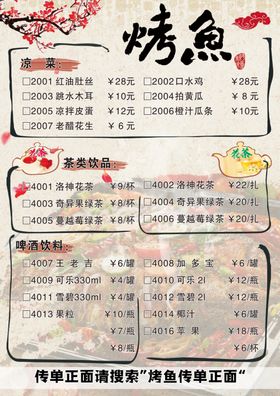 烤魚
凉 菜:
□2001 红油肚丝 ￥28元 □2002口水鸡 ￥28元
□2003 跳水木耳 ￥10元 □2004拍黄瓜 ￥8元
□2005 凉拌皮蛋 ￥12元 □2006橙汁瓜条 ￥10元
□2007 老醋花生 ￥6元
花茶
茶类饮品:
花茶
□4001 洛神花茶 ￥9/杯 □4002 洛神花茶 ￥22/扎
□4003 奇异果绿茶 ￥8/杯 □4004 奇异果绿茶 ￥20/扎
□4005 蔓越莓绿茶 ￥8/杯 □4006 蔓越莓绿茶 ￥20/扎
啤酒饮料:
□4007 王老吉 ￥6/罐 □4008 加多宝 ￥6/罐
□4009 可乐330ml ￥4/罐 □4010 可乐2l ￥12/瓶
□4011 雪碧300ml ￥4/罐 □4012 雪碧2l ￥12/瓶
□4013 果粒 ￥10/瓶 □4014 椰汁 ￥6/罐
￥7/瓶 □4016 苹果 ￥18/瓶
￥8/瓶 ￥6/杯
传单正面请搜索"烤鱼传单正面"